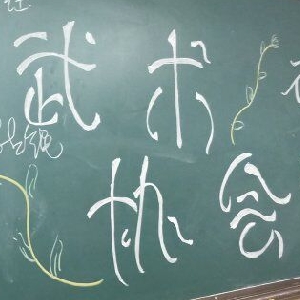 武术
协会